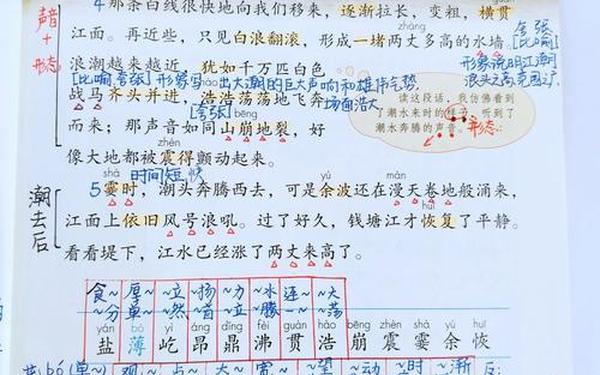 声音
+
形态
4 那条白线很快地向我们移来，逐渐拉长，变粗，横贯
zhàng
夸张
江面。再近些，只见白浪翻滚，形成一堵两丈多高的水墙。
[比喻]
浪潮越来越近，犹如千万匹白色
形象说明江潮
[比喻,夸张]形象写出大潮的巨大声响和雄伟气势
战马齐头并进，浩浩荡荡地飞奔
场面浩大
[夸张]
bēng
而来；那声音如同山崩地裂，好
zhèn
像大地都被震得颤动起来。
读这段话，我仿佛看到
了潮水来时的样子，听到了
潮水奔腾的声音。
形态
潮去后
shà
时间短,快
yú
màn
5 霎时，潮头奔腾西去，可是余波还在漫天卷地般涌来，
hūhǒu
huī
江面上依旧风号浪吼。过了好久，钱塘江才恢复了平静。
看看堤下，江水已经涨了两丈来高了。
食～ 厚～ ～立 ～扬 ～力 ～水 连～ ～大
～分 单～ ～然 ～首 ～立 ～腾 ～荡
yán bó yì áng dǐng fèi guàn hào bēng zhèn shà yú huī
盐 薄 屹 昂 鼎 沸 贯 浩 崩 震 霎 余 恢
bó(单～)